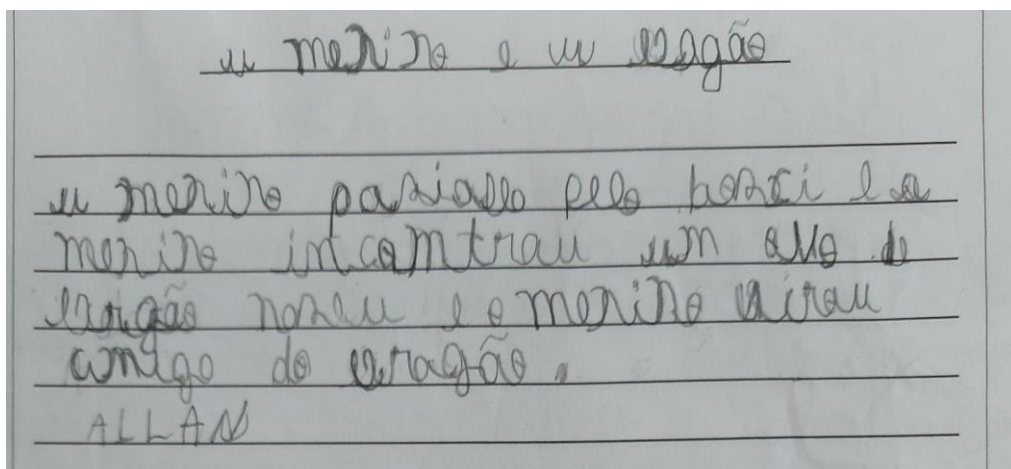 u menino e u dragão
u menino pasiado pelo bosci e o
menino incomtrau um ovo de
dragão naseu e o menino virou
amigo do dragão.
ALLAN